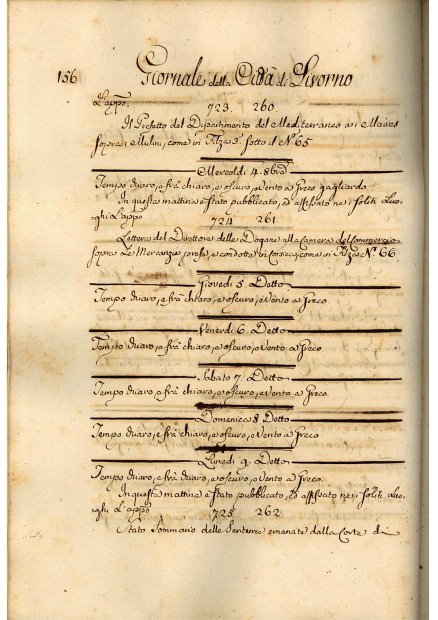 156 Giornale della Città di Livorno
L'appo. 723. 260.
Il Prefetto del Dipartimento del Mediterraneo ai Maires
sopra i Mulini, come in Filza 3. sotto il N.º 65
Mercoldì 4. 8bre
Tempo chiaro, e frà chiaro, e oscuro, e Vento a Greco gagliardo
In questa mattina è stato pubblicato, ed affissato nei soliti Luo-
ghi L'appo 724 261
Lettera del Direttore delle Dogane alla Camera del Commercio
sopra le Mercanzie prese, e condotte in Corsica, come in Filza N.º 66.
Giovedì 5. Detto
Tempo chiaro, e frà chiaro, e oscuro, e Vento a Greco
Venerdì 6. Detto
Tempo chiaro, e frà chiaro, e oscuro, e Vento a Greco
Sabato 7. Detto
Tempo chiaro, e frà chiaro, e oscuro, e Vento a Greco.
Domenica 8 Detto
Tempo chiaro, e frà chiaro, e oscuro, e Vento a Greco
Lunedì 9. Detto
Tempo chiaro, e frà chiaro, e oscuro, e Vento a Greco.
In questa mattina è stato pubblicato, ed affissato nei soliti Luo-
ghi L'appo 725 262
Stato Sommario delle Sentenze emanate dalla Corte di